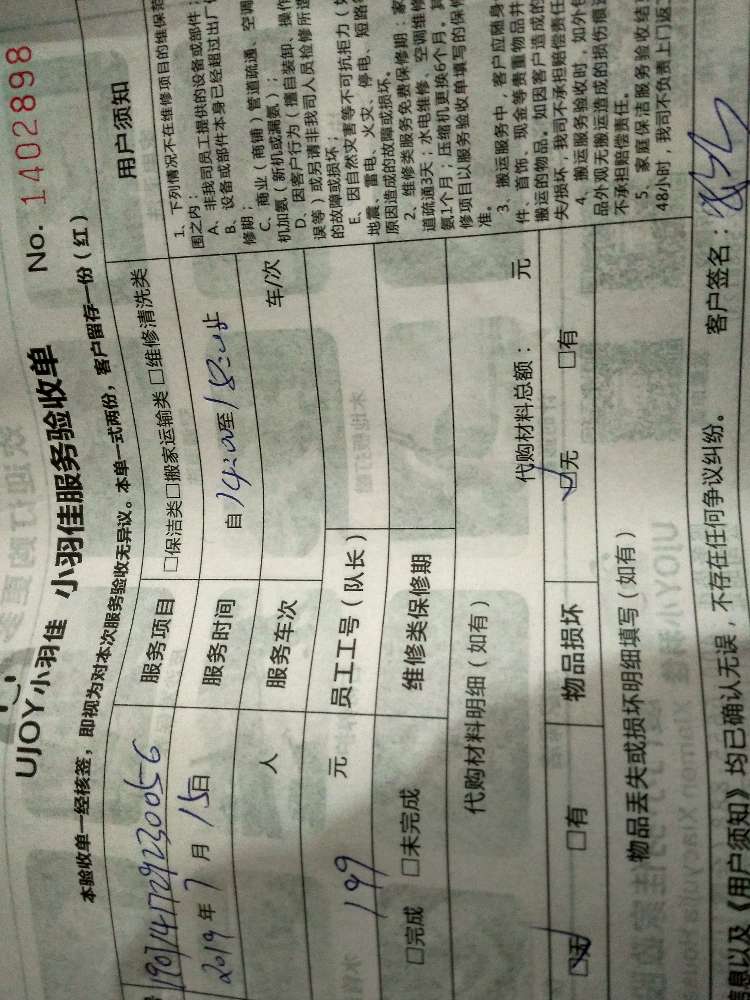 UJOY小羽佳 小羽佳服务验收单 No. 1402898
本验收单一经核签，即视为对本次服务验收无异议。本单一式两份，客户留存一份（红）
服务项目 □保洁类□搬家运输类 □维修清洗类
2019年7月15日 服务时间 自14:00至
人 服务车次 车/次
199元 员工工号（队长）
□完成 □未完成 维修类保修期
代购材料明细（如有） 代购材料总额： 元
☑无 □有 物品损坏 ☑无 □有
物品丢失或损坏明细填写（如有）
信息以及《用户须知》均已确认无误，不存在任何争议纠纷。 客户签名：
用户须知
1、下列情况不在维修项目的维保范
围之内：
A、非我司员工提供的设备或部件；
B、设备或部件本身已经超过出厂
修期；
C、商业（商铺）管道疏通、空调
机加氨（新机或漏氨）；
D、因客户行为（擅自装卸、操作
误等）或另请非我司人员检修所造
的故障或损坏；
E、因自然灾害等不可抗拒力（如
地震、雷电、火灾、停电、短路等
原因造成的故障或损坏。
2、维修类服务免费保修期：家
道疏通3天；水电维修、空调维修
氨1个月；压缩机更换6个月。其
修项目以服务验收单填写的保修
准。
3、搬运服务中，客户应随身
件、首饰、现金等贵重物品并
搬运的物品。如因客户造成的
失/损坏，我司不承担赔偿责任
4、搬运服务验收时，如外包
品外观无搬运造成的损伤痕迹
不承担赔偿责任。
5、家庭保洁服务验收结束
48小时，我司不负责上门返